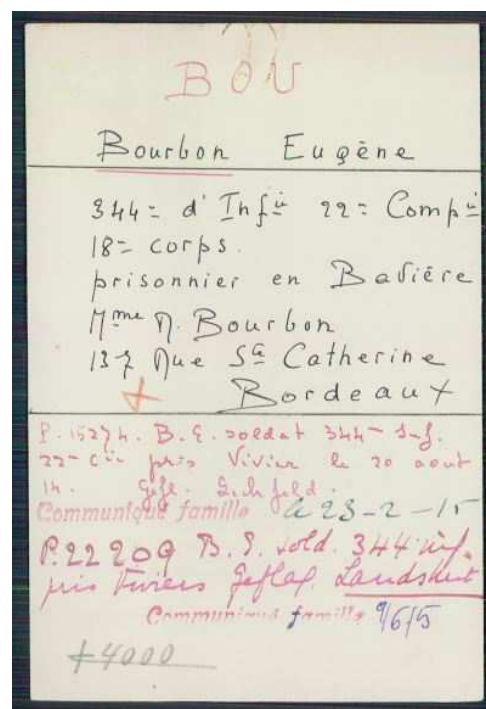 BOU
Bourbon Eugène
344= d'Infie 22= Compie
18= corps.
prisonnier en Bavière
Mme M. Bourbon
137 Rue Ste Catherine
Bordeaux
P. 15274. B. E. soldat 344= Inf.
22= Cie pris Vivier le 20 aout
14. Gefl. Lechfeld.
Communiqué famille le 23-2-15
P.22209 B. E. sold. 344 inf.
pris Viviers Geflag. Landshut
Communiqué famille 9/6/15
+4000